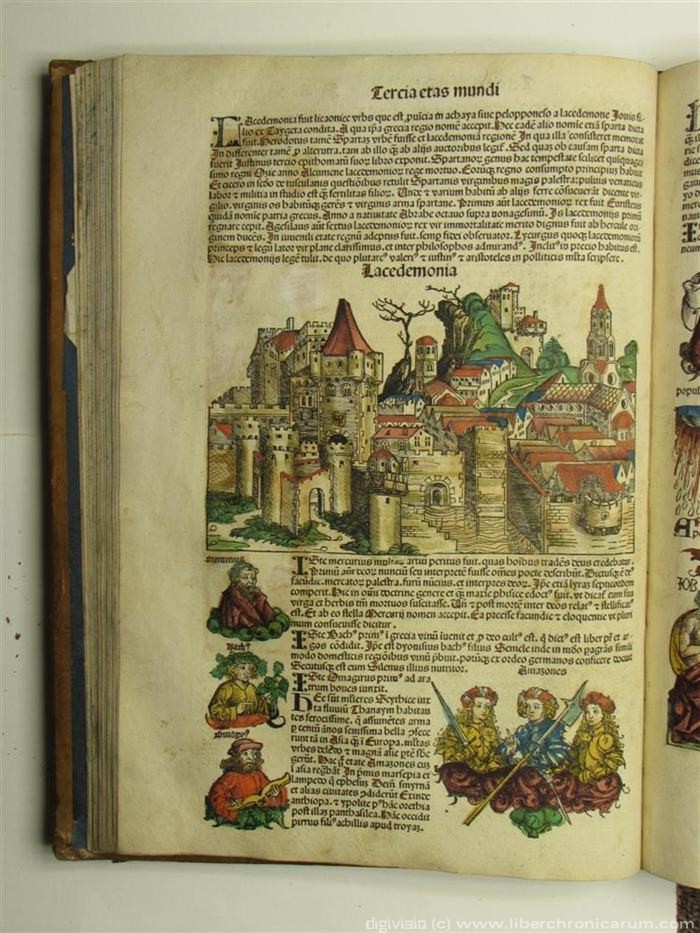 Tercia etas mundi
LAcedemonia fuit licaonice vrbs que est ꝓuĩcia in achaya siue pelopponeso a lacedemone Jouis fi-
lio ex Taygeta condita. A qua ip̃a grecia regio nomẽ accepit. Hec eadẽ alio nomine etiã sparta dicta
fuit. Herodotus tamẽ Spartaʒ vrbẽ fuisse et lacedemonia regionẽ In qua illa cõsisteret memorat
In differenter tamẽ ꝓ alterutra. tam ab illo ꝗ̃ ab alijs auctoribus legit᷑. Sed quas ob causam sparta dicta
fuerit Justinus tercio epithomatũ suoꝝ libro exponit. Spartanoꝝ genus hac tempestate scilicet quiquage
simo regni Ozie anno Alcumene lacedemonioꝝ rege mortuo. Eoruꝗ regno consumpto principiũ habuit
Et cicero in scďo de tusculanis questiõibus retulit Spartanis virginibus magis palestra: puluis venaticus
labor ⁊ militia in studio est ꝗ̃ fertilitas filioꝝ. Unde ⁊ varium habitũ ab alijs ferre cõsueuerãt dicente vir-
gilio. virginis os habitũꝗ gerẽs ⁊ virginis arma spartane. Primus aũt lacedemonioꝝ rex fuit Euristeus
quidã nomine patria grecus. Anno a natiuitate Abrahe octauo supra nonagesimũ. Is lacedemonijs primũ
regnare cepit. Agesilaus aũt sextus lacedemonioꝝ rex vir immortalitate merito dignus fuit ab hercule ori-
ginem ducẽs. In iuuenili etate regnũ adeptus fuit. semp fidei obseruator. Lycurgus quoꝗ lacedemonioꝝ
princeps ⁊ legũ lator vir plane clarissimus. et inter philosophos admirand᷒. Inclit᷒ in precio habitus est.
Hic lacedemonijs legẽ tulit. de quo plutarc᷒ valeri᷒ ⁊ iustin᷒ ⁊ aristoteles in polliticis m̃lta scripsere.
Lacedemonia
ISte mercurius multaꝝ artiũ peritus fuit. quas hoĩbus tradẽs deus credebatur.
Primũ aũt deoꝝ nunciũ seu interpretẽ fuisse om̃es poete describũt. Dictusꝗ ẽ de᷒
facũdie. mercatoꝝ palestra. furũ nũcius. et interpres deoꝝ. Ip̃e etiã lyraʒ septicordem
comperit. Hic in oĩni doctrine genere et ꝗ̃ maxie phisice edoct᷒ fuit. vt dicat᷑ eum sua
virga et herbis tm̃ mortuos suscitasse. Un̄ ⁊ post mortẽ inter deos relat᷒ ⁊ stellificat᷒
est. Et ab eo stella Mercurij nomen accepit. Ea pacisse facundie ⁊ eloquentie vt pluri
mum consueuisse dicitur.
Mercurius
ISte Bach᷒ prim᷒ ĩ grecia vinũ iuenit et ꝓ deo cult᷒ est. ꝗ dict᷒ est liber pr̃ et ar-
gos cõdidit. Ip̃e est dyonisius bach᷒ filius Semele inde in mõo ꝓagrãs simili
modo domesticis regiõibus vinũ ꝓbuit. potũꝗ ex ordeo germanos conficere docuit
Secutusꝗ est eum Silenus illius nutritor.
Bach᷒
Amazones
ISte Omagirus prim᷒ ad ara
trum boues iunxit.
Omagir᷒
HEe sũt m̃lieres Scythice iux
ta fluuiũ Thanaym habitan
tes ferocissime. ꝗ̃ assumẽtes arma
ꝑ centũ ãnos seuissima bella ꝑfece
runt tã in Asia ꝗ̃ ĩ Europa. m̃ltas
vrbes delẽdo ⁊ magnã asie ptẽ s̃be
gerũt. Hac ꝗ̃ etate Amazones cũ
ĩ asia regbãt In ꝓmis marsepia et
lampedo ꝗ̃ ephesuʒ Dein smyrnã
et alias ciuitates ꝯdiderũt Exinde
anthiopa. ⁊ ypolite p᷒ hãc orethia
post illas panthasilea. Hãc occidit
pirrus fili᷒ achillis apud troyaʒ.
popul
JOB
digivisio (c) www.liberchronicarum.com